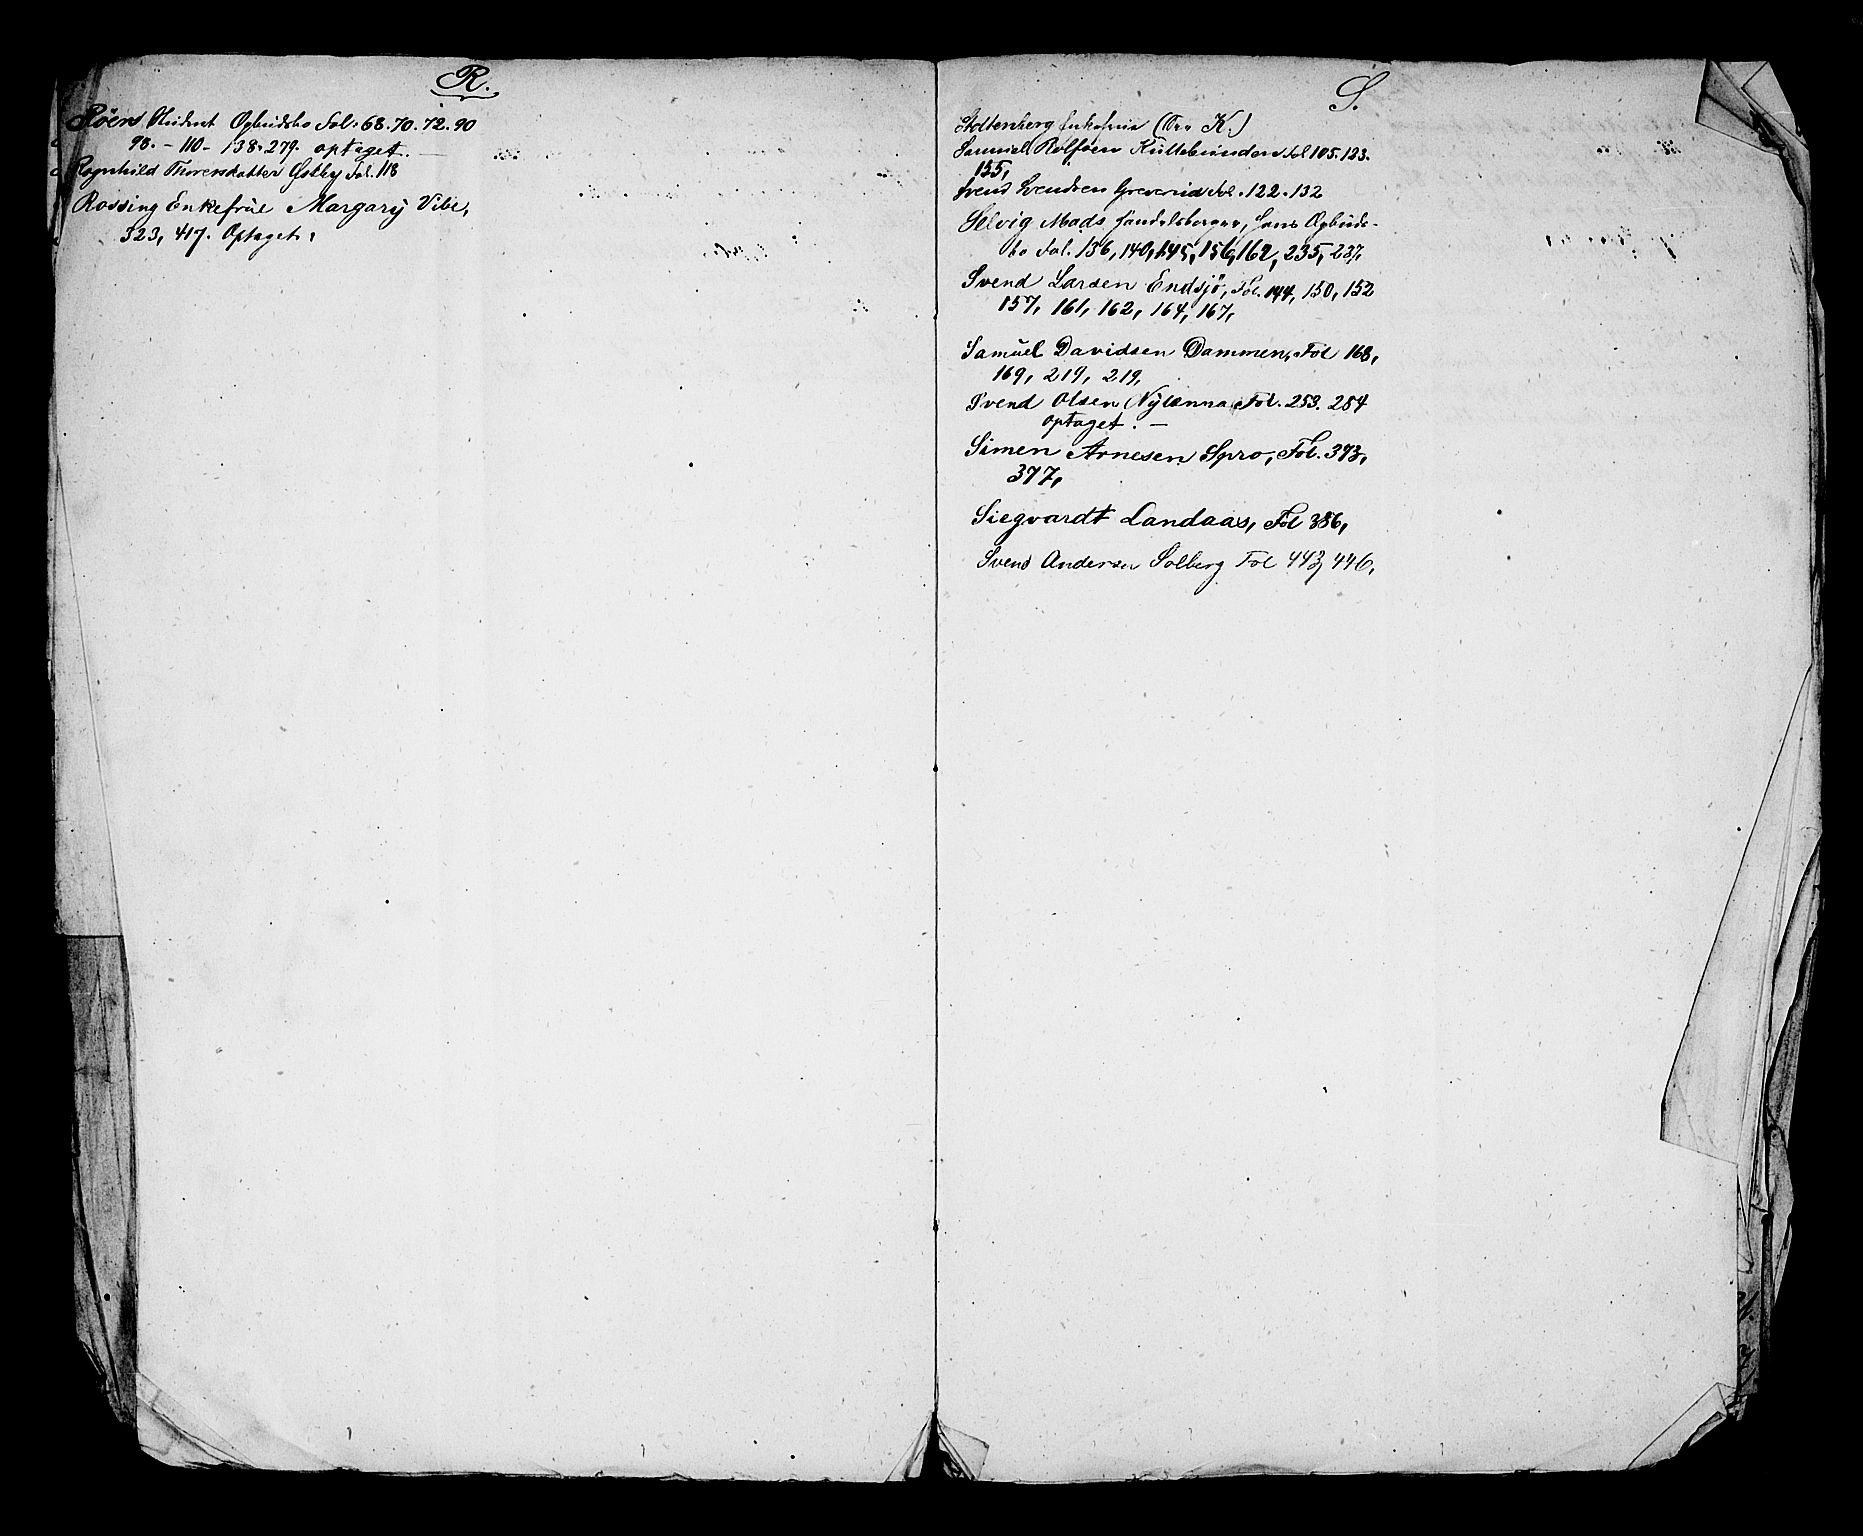 R.
Röers Student Opbudsbo Fol. 68. 70. 72. 90
98. - 110 - 138. 279. optaget. —
Ragnhild Thoresdatter Østby Fol. 118
Rossing Enkefrue Margary Vibe,
323, 417. Optaget.
S.
Stoltenberg Enkefrue (See K.)
Samuel Rolfsen Küttebunden Fol 105. 123.
155,
Svend Svendsen Greverud Fol. 122. 132
Selvig Mads Handelsborger, Hans Opbuds-
bo Fol. 136, 140, 145, 156, 162, 235, 237,
Svend Larsen Endsjö, Fol. 144, 150, 152
157, 161, 162, 164, 167,
Samuel Davidsen Dammen, Fol 168,
169, 219, 219,
Svend Olsen Nylænna Fol. 253. 254
optaget. —
Simen Arnesen Spro, Fol. 373,
377,
Siegvardt Landaas, Fol 386,
Svend Andersen Solberg Fol 443, 446,